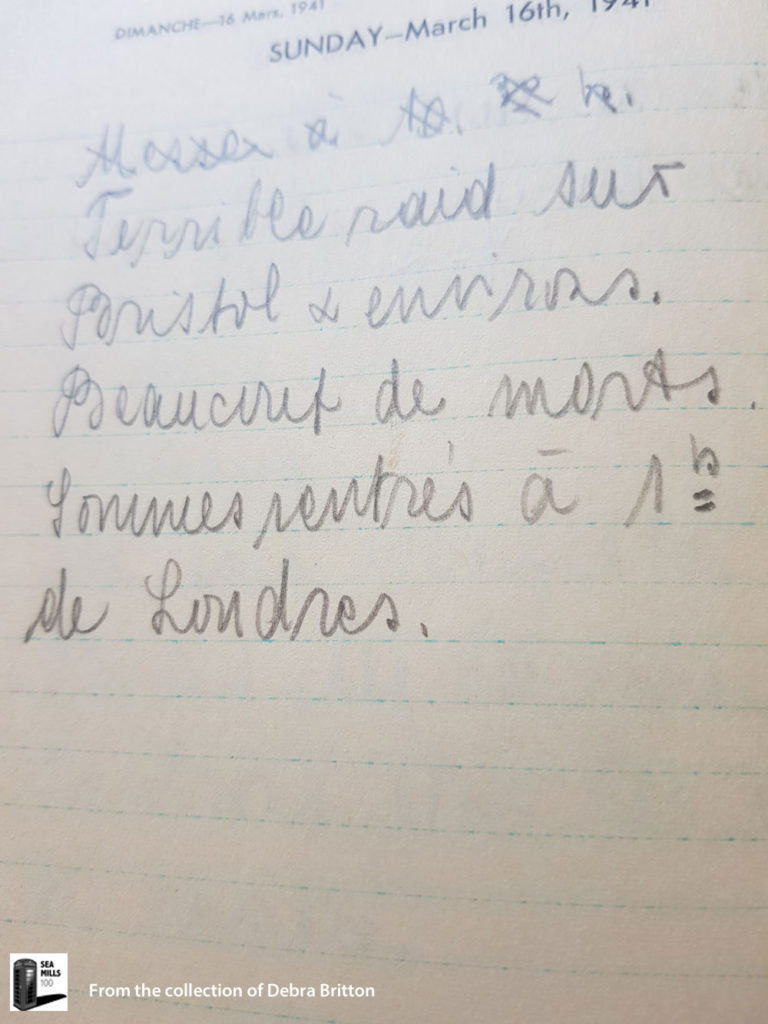 DIMANCHE—16 Mars, 1941
SUNDAY—March 16th, 1941
à h.
Terrible raid sur
Bristol & environs.
Beaucoup de morts.
Sommes rentrés à 1 h
de Londres.
SEA
MILLS
100
From the collection of Debra Britton